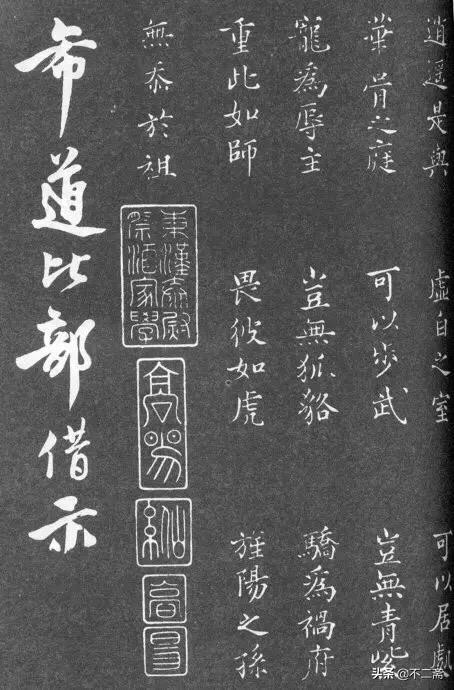 逍遥是與 虛白之室 可以居處
華胥之庭 可以步武 豈無青紫
寵爲辱主 豈無狐貉 驕爲禍府
重此如師 畏彼如虎 旌陽之孫
無忝於祖
東漢太尉
祭酒家學
希道比部借示
头条@不二斋